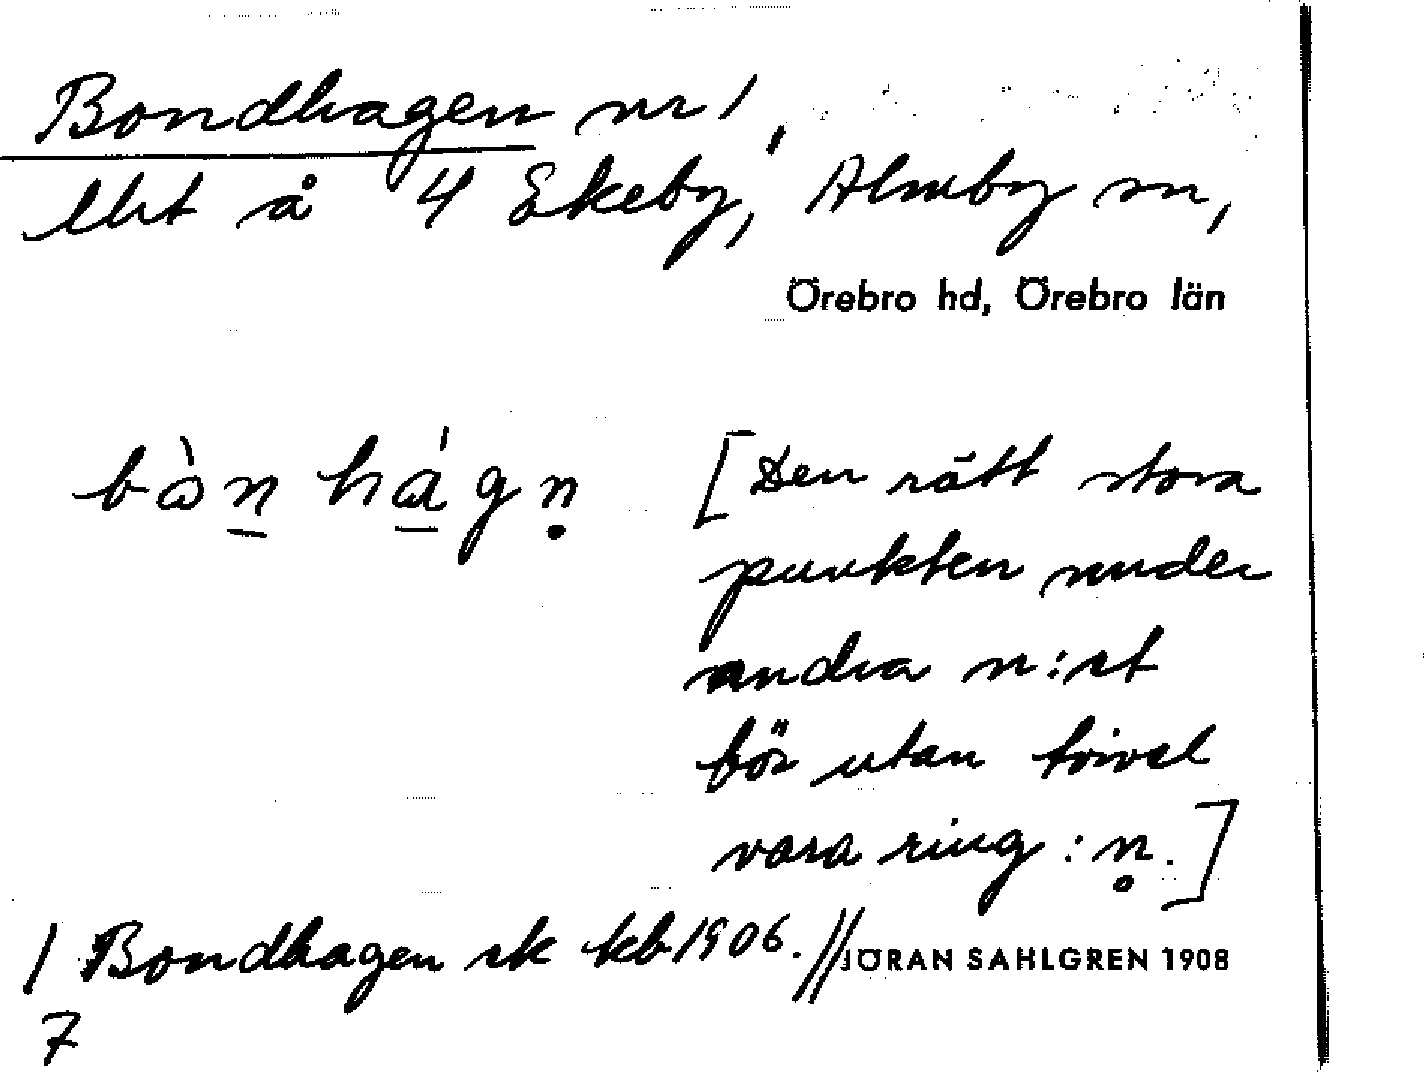 Bondhagen nr 1,
lht å 4 Ekeby, Almby sn,
Örebro hd, Örebro län
bὰn hágṇ [Den rätt stora
punkten under
andra n:et
bör utan tvivel
vara ring: n̥.]
1 Bondhagen sk kb 1906. // JÖRAN SAHLGREN 1908
7